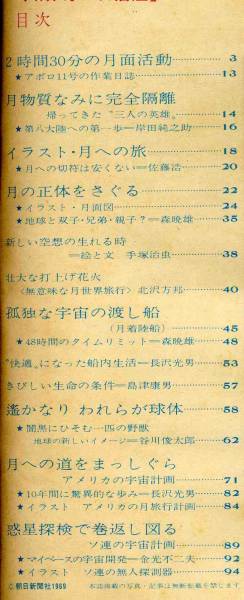 目次
2時間30分の月面活動 3
★アポロ11号の作業日誌 13
月物質なみに完全隔離
帰ってきた“三人の英雄” 14
★第八大陸への第一歩＝岸田純之助 16
イラスト・月への旅 18
★月への切符は安くない＝佐藤浩 20
月の正体をさぐる 22
★イラスト・月面図 24
★地球と双子・兄弟・親子？＝森暁雄 35
新しい空想の生れる時
＝絵と文 手塚治虫 38
壮大な打上げ花火
〈無意味な月世界旅行〉北沢方邦 40
孤独な宇宙の渡し船
(月着陸船) 45
★48時間のタイムリミット＝森暁雄 48
“快適”になった船内生活＝長沢光男 53
きびしい生命の条件＝島津康男 57
遙かなり われらが球体 58
★闇黒にひそむ一匹の野獣
地球の新しいイメージ＝谷川俊太郎 62
月への道をまっしぐら
アメリカの宇宙計画 71
★10年間に驚異的な歩み＝長沢光男 82
★イラスト アメリカの月旅行計画 84
惑星探検で巻返し図る
ソ連の宇宙計画 89
★マイペースの宇宙開発＝金光不二夫 92
★イラスト ソ連の無人探測器 94
©朝日新聞社1969 本誌掲載の写真・記事は無断転載を禁じます